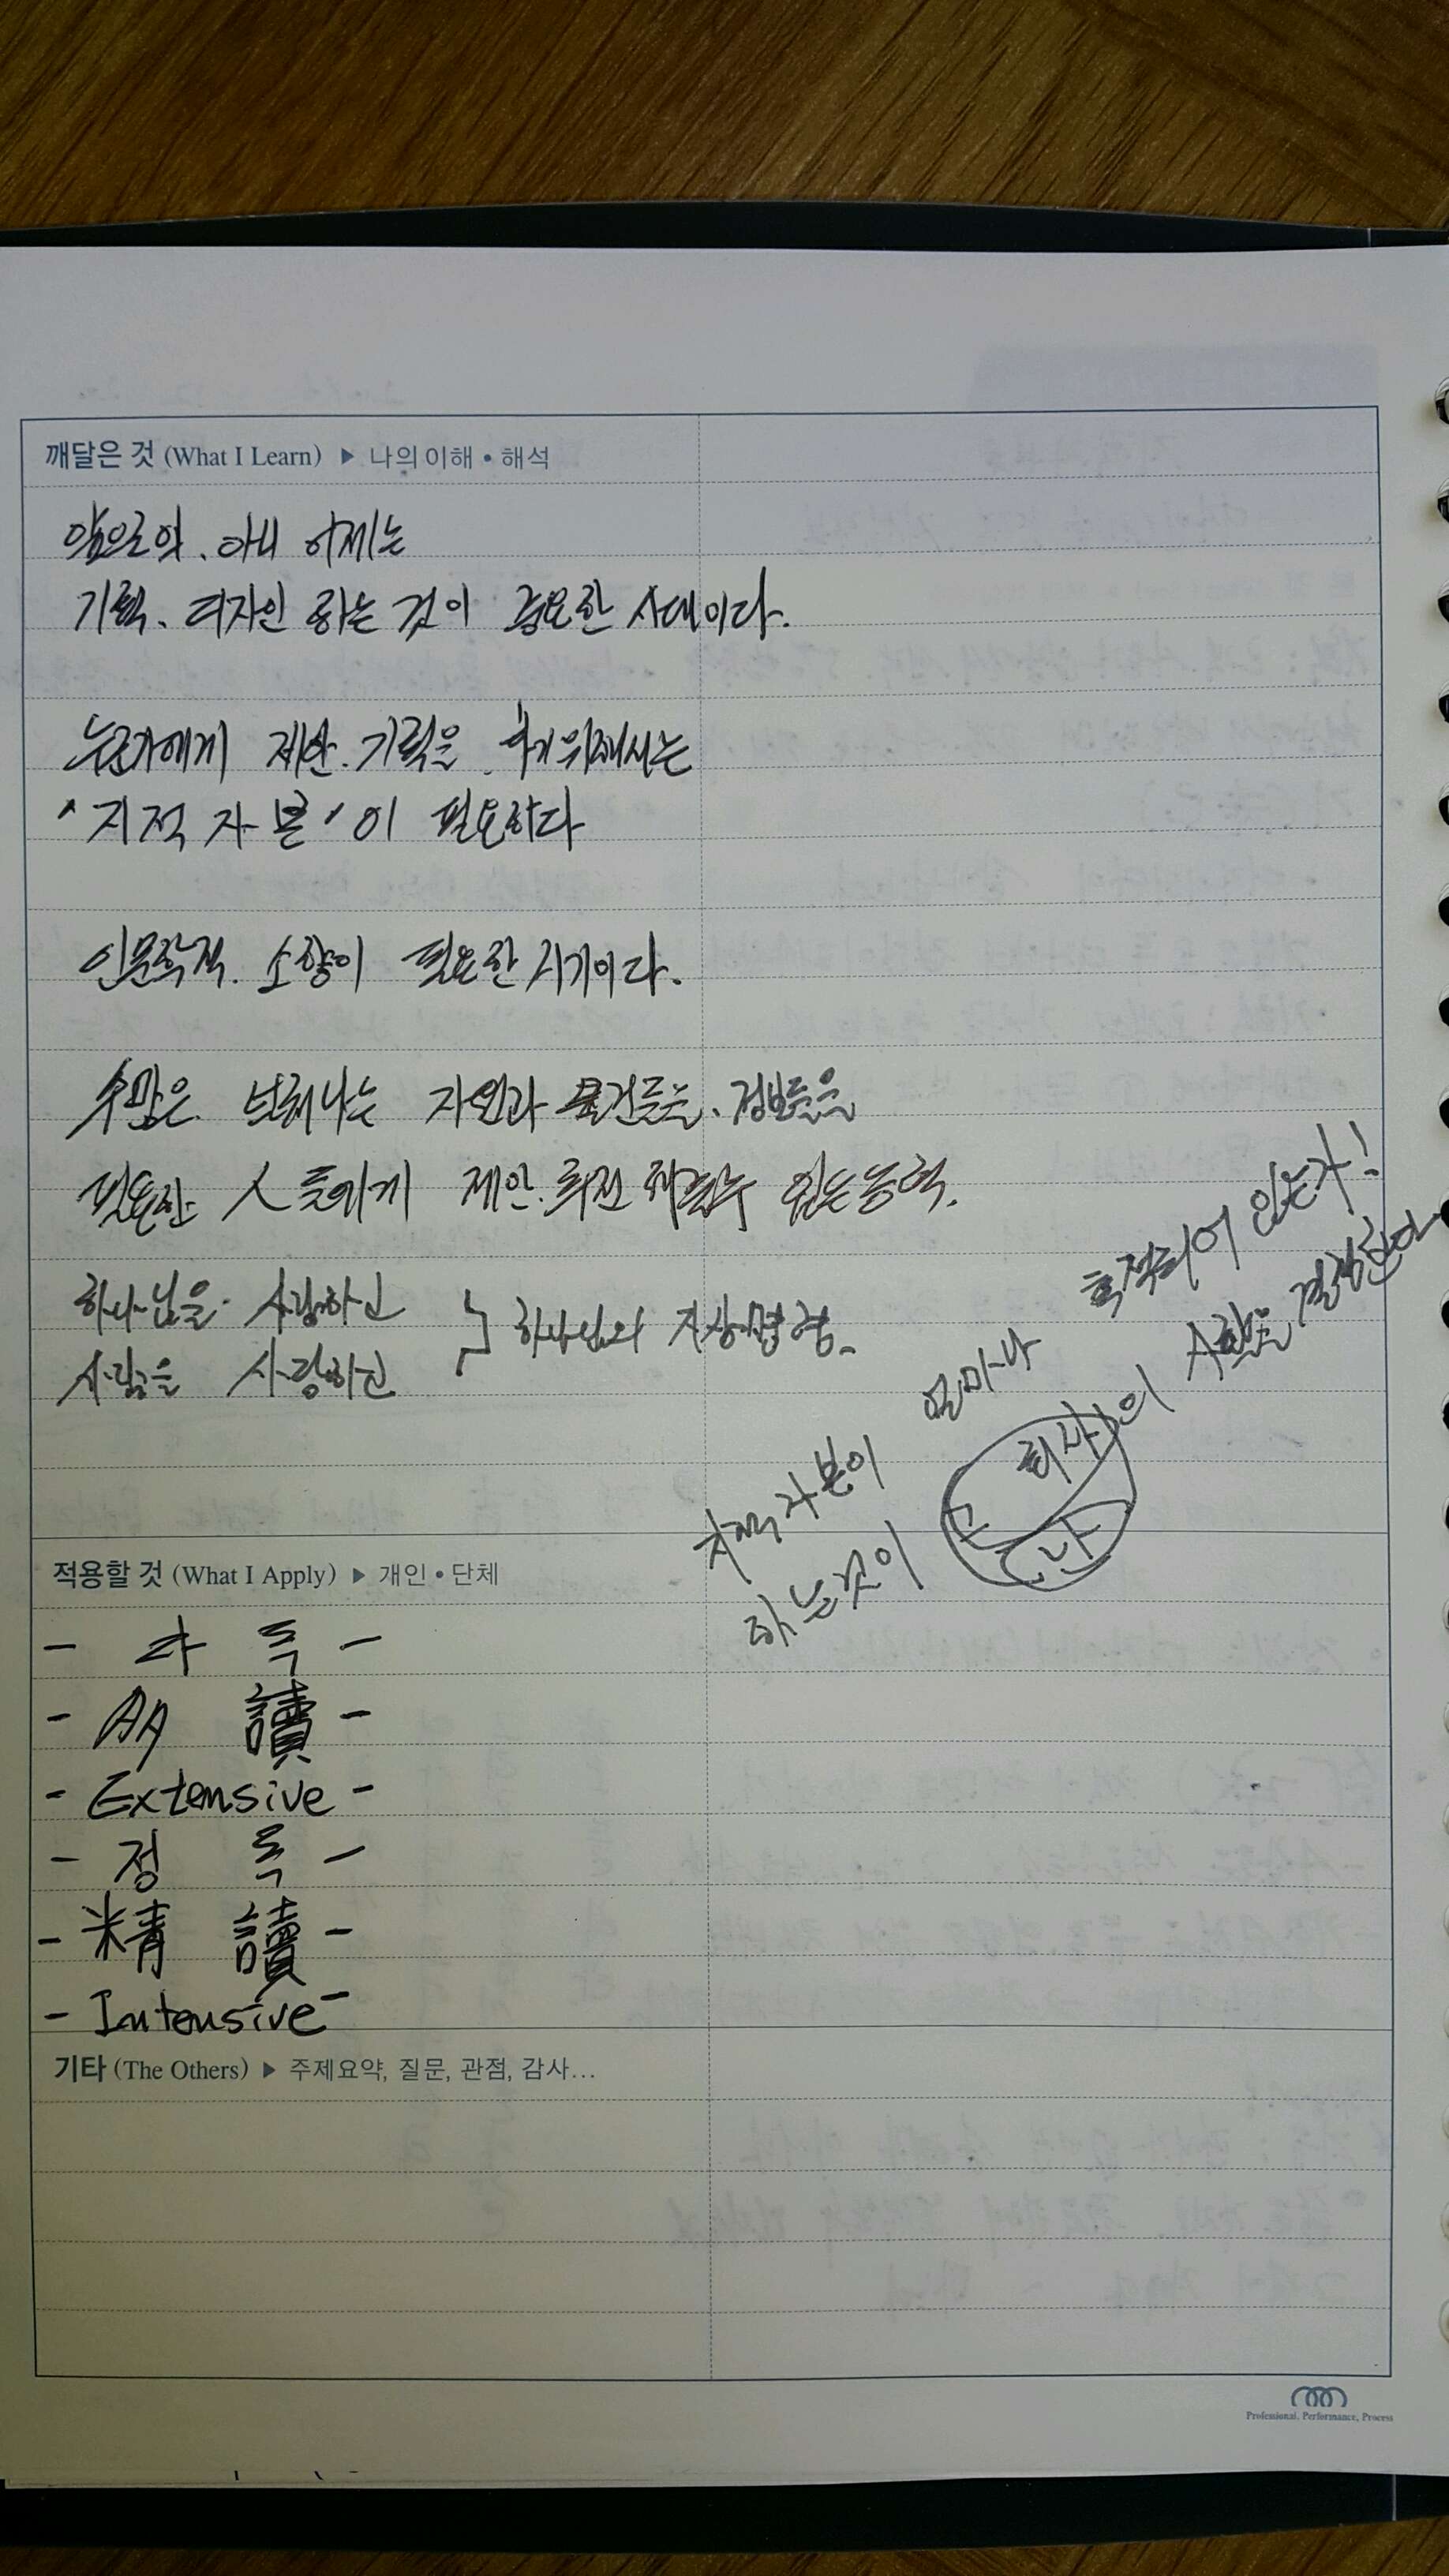 깨달은 것 (What I Learn) ▶ 나의 이해 • 해석
앞으로의. 아니 이제는
기획、디자인 하는 것이 중요한 시대이다.
누군가에게 제안. 기획을 하기위해서는
'지적 자본'이 필요하다
인문학적. 소양이 필요한 시기이다.
수많은 자연과 물건들을. 정보들을
필요한 人들에게 제안. 해줄수 있는 능력.
하나님을. 사랑하고
사람을 사랑하고
하나님의 지상명령.
지적자본이 얼마나 축적되어 있는가!
하는것이 회사의 사활을 결정한다
나
적용할 것 (What I Apply) ▶ 개인 • 단체
- 다 독 -
- 多 讀 -
- Extensive -
- 정 독 -
- 精 讀 -
- Intensive -
기타 (The Others) ▶ 주제요약, 질문, 관점, 감사...
Professional, Performance, Process